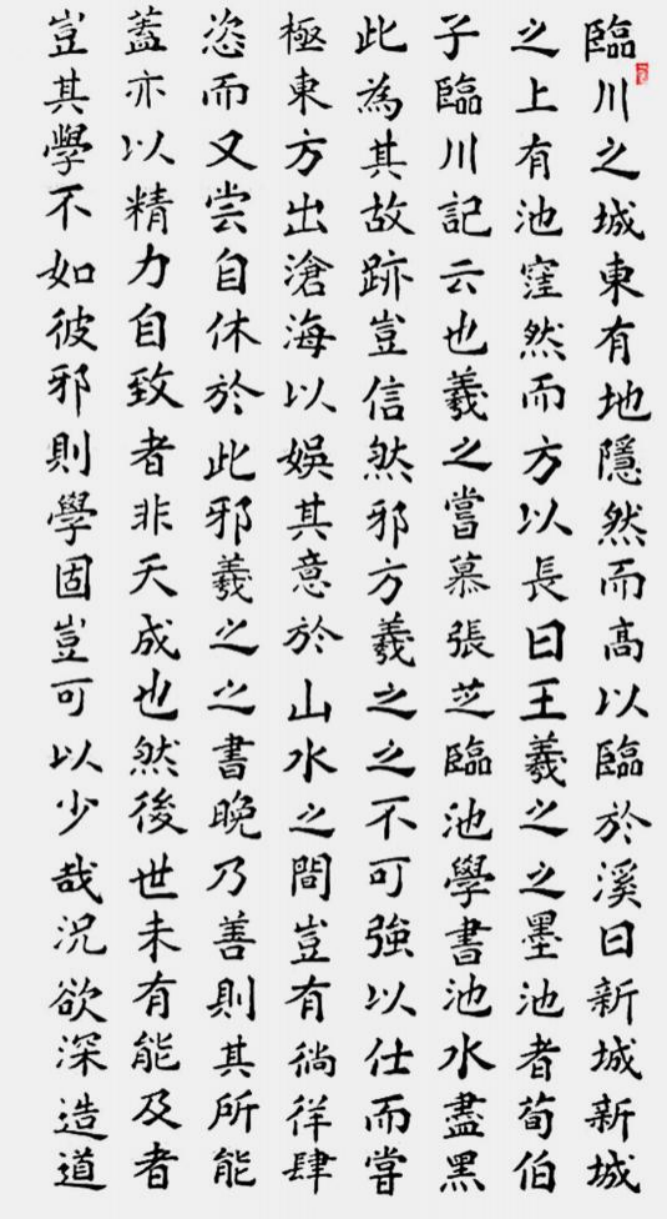 臨川之城東有地隱然而高以臨於溪曰新城新城
之上有池窪然而方以長曰王羲之之墨池者荀伯
子臨川記云也羲之嘗慕張芝臨池學書池水盡黑
此為其故跡豈信然邪方羲之之不可強以仕而嘗
極東方出滄海以娛其意於山水之間豈有徜徉肆
恣而又嘗自休於此邪羲之之書晚乃善則其所能
蓋亦以精力自致者非天成也然後世未有能及者
豈其學不如彼邪則學固豈可以少哉況欲深造道